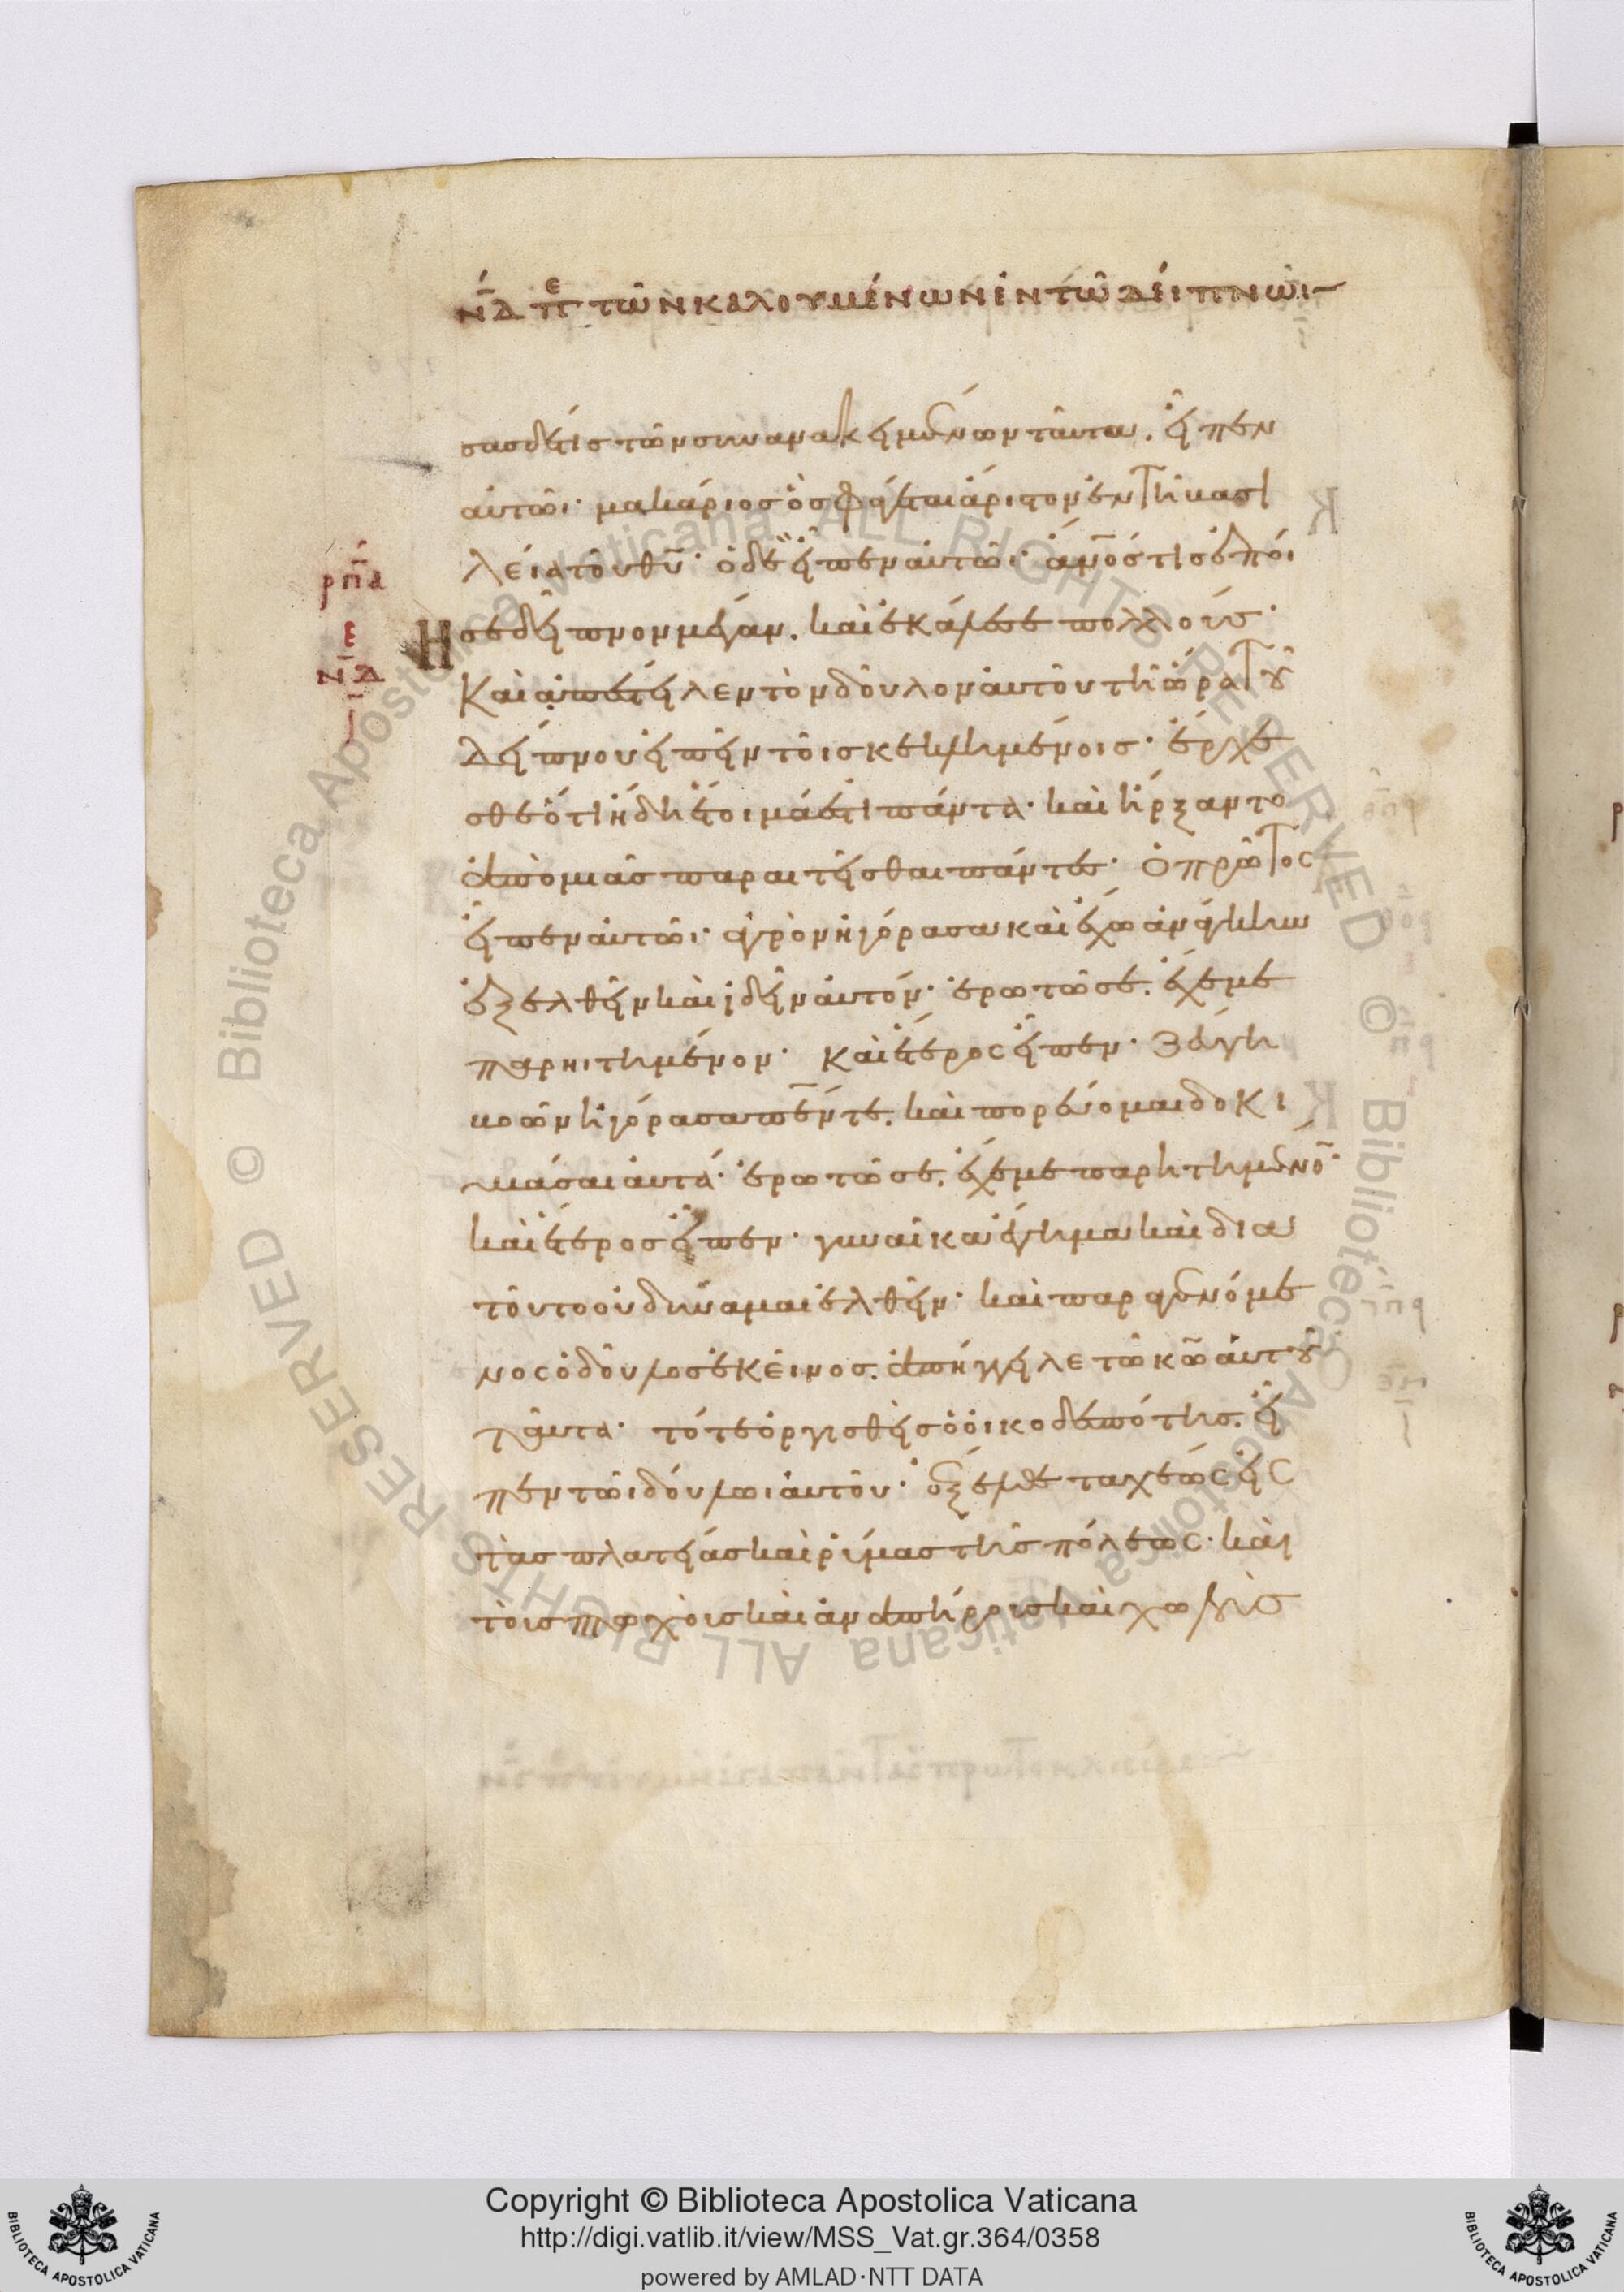 ΝΔ ΠΕ ΤΩΝ ΚΑΛΟΥΜΕΝΩΝ ἐΝ ΤΩ ΔΕΙΠΝΩι
σας δέ τις τῶν συνανακειμένων ταῦτα. εἶπεν
αὐτῶι· μακάριος ὃς φάγεται ἄριστον ἐν τῆι βασι
λείαι τοῦ θυ· ὁ δὲ εἶπεν αὐτῶι· ανος τις ἐποί
ησε δεῖπνον μέγαν. καὶ ἐκάλεσε πολλούς·
Καὶ ἀπέστειλεν τὸν δοῦλον αὐτοῦ τῆ ὥρα τοῦ
δείπνου εἰπεῖν τοῖς κεκλημένοις· ἔρχε
σθε ὅτι ἤδη ἕτοιμά ἐστι πάντα· καὶ ἤρξαντο
ἀπὸ μιᾶς παραιτεῖσθαι πάντες· ὁ πρῶτος
εἶπεν αὐτῶι· ἀγρὸν ἠγόρασα καὶ ἔχω ἀνάγκην
ἐξελθεῖν καὶ ἰδεῖν αὐτόν· ἐρωτῶ σε. ἔχε με
παρηιτημένον· Καὶ ἕτερος εἶπεν· Ζεύγη
βοῶν ἠγόρασα πέντε. καὶ πορεύομαι δοκι
μάσαι αὐτά· ἐρωτῶ σε. ἔχε με παρητημένο·
καὶ ἕτερος εἶπεν· γυναῖκα ἔγημα καὶ δια
τοῦτο οὐ δύναμαι ἐλθεῖν· καὶ παραγενόμε
νος ὁ δοῦλος ἐκεῖνος. ἀπήγγειλε τῶ κω αὐτοῦ
ταῦτα· τότε ὀργισθεὶς ὁ οἰκοδεσπότης. εἶ
πεν τῶι δούλωι αὐτοῦ· ἔξελθε ταχέως εἰς
τὰς πλατείας καὶ ρύμας τῆς πόλεως· καὶ
τοὶς πτωχοὶς καὶ ἀναπήροις καὶ χωλοὶς
ρπα
ε
ΝΔ
Copyright © Biblioteca Apostolica Vaticana
http://digi.vatlib.it/view/MSS_Vat.gr.364/0358
powered by AMLAD·NTT DATA
BIBLIOTECA APOSTOLICA VATICANA
BIBLIOTECA APOSTOLICA VATICANA
© Biblioteca Apostolica Vaticana ALL RIGHTS RESERVED
© Biblioteca Apostolica Vaticana ALL RIGHTS RESERVED